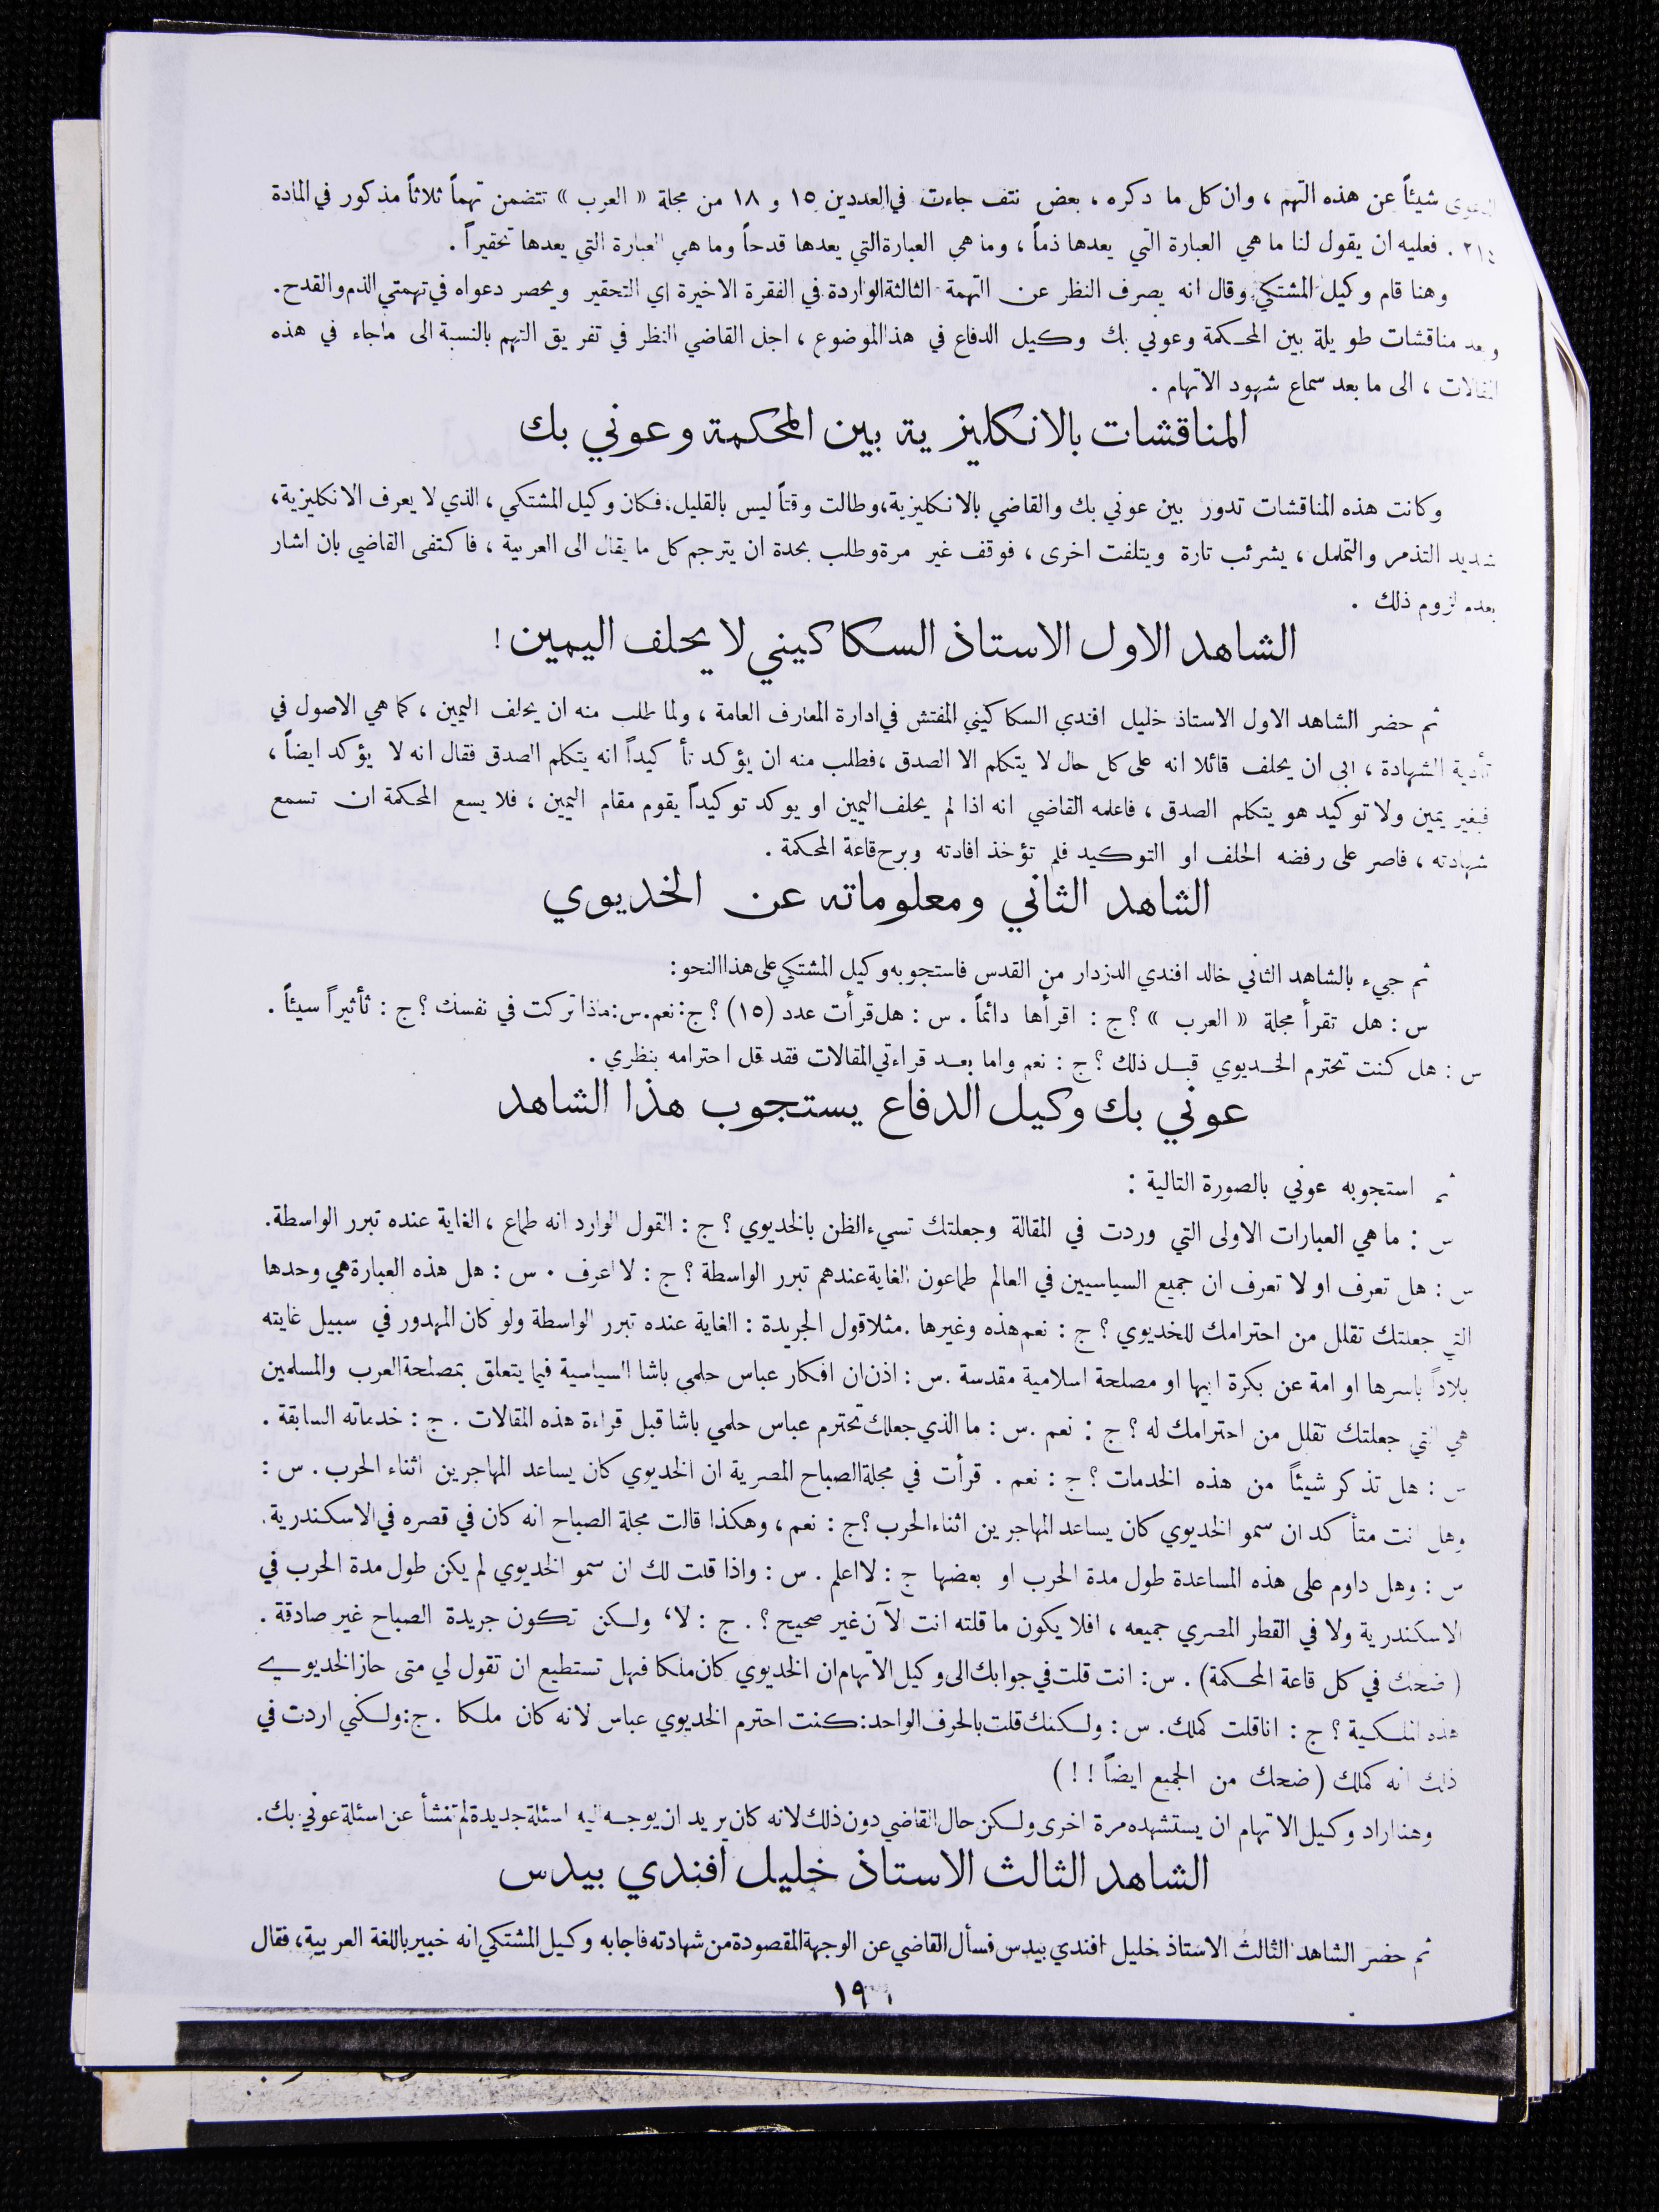 شيئاً عن هذه التهم ، وان كل ما دكره ، بعض نتف جاءت في العددين ١٥ و ١٨ من مجلة « العرب » تتضمن تهماً ثلاثاً مذكور في المادة
. فعليه ان يقول لنا ما هي العبارة التي يعدها ذماً ، وما هي العبارة التي يعدها قدحاً وما هي العبارة التي يعدها تحقيراً .
وهنا قام وكيل المشتكي وقال انه يصرف النظر عن التهمة الثالثة الواردة في الفقرة الاخيرة اي التحقير ويحصر دعواه في تهمتي الذم والقدح.
وبعد مناقشات طويلة بين المحكمة وعوني بك وكيل الدفاع في هذا الموضوع ، اجل القاضي النظر في تفريق التهم بالنسبة الى ماجاء في هذه
المقالات ، الى ما بعد سماع شهود الاتهام .
المناقشات بالانكليزية بين المحكمة وعوني بك
وكانت هذه المناقشات تدور بين عوني بك والقاضي بالانكليزية،وطالت وقتاً ليس بالقليل،فكان وكيل المشتكي ، الذي لا يعرف الانكليزية،
شديد التذمر والتململ ، يشرئب تارة ويتلفت اخرى ، فوقف غير مرة وطلب بحدة ان يترجم كل ما يقال الى العربية ، فاكتفى القاضي بان اشار
بعدم لزوم ذلك .
الشاهد الاول الاستاذ السكاكيني لا يحلف اليمين !
ثم حضر الشاهد الاول الاستاذ خليل افندي السكاكيني المفتش في ادارة المعارف العامة ، ولما طلب منه ان يحلف اليمين ، كما هي الاصول في
تأدية الشهادة ، ابى ان يحلف قائلا انه على كل حال لا يتكلم الا الصدق ،فطلب منه ان يؤكد تأكيداً انه يتكلم الصدق فقال انه لا يؤكد ايضاً ،
فبغير يمين ولا توكيد هو يتكلم الصدق ، فاعلمه القاضي انه اذا لم يحلف اليمين او يوكد توكيداً يقوم مقام اليمين ، فلا يسع المحكمة ان تسمع
شهادته ، فاصر على رفضه الحلف او التوكيد فلم تؤخذ افادته وبرح قاعة المحكمة .
الشاهد الثاني ومعلوماته عن الخديوي
ثم جيء بالشاهد الثاني خالد افندي الدزدار من القدس فاستجوبه وكيل المشتكي على هذا النحو :
س : هل تقرأ مجلة « العرب » ؟ ج : اقرأها دائماً . س : هل قرأت عدد (١٥) ؟ ج: نعم.س:ماذا تركت في نفسك ؟ ج : تأثيراً سيئاً .
س : هل كنت تحترم الخديوي قبل ذلك ؟ ج : نعم واما بعد قراءتي المقالات فقد قل احترامه بنظري .
عوني بك وكيل الدفاع يستجوب هذا الشاهد
ثم استجوبه عوني بالصورة التالية :
س : ما هي العبارات الاولى التي وردت في المقالة وجعلتك تسيء الظن بالخديوي ؟ ج : القول الوارد انه طماع ، الغاية عنده تبرر الواسطة.
س : هل تعرف او لا تعرف ان جميع السياسيين في العالم طماعون الغاية عندهم تبرر الواسطة ؟ ج : لا اعرف . س : هل هذه العبارة هي وحدها
التي جعلتك تقلل من احترامك للخديوي ؟ ج : نعم هذه وغيرها .مثلا قول الجريدة : الغاية عنده تبرر الواسطة ولو كان المهدور في سبيل غايته
بلاداً باسرها او امة عن بكرة ابيها او مصلحة اسلامية مقدسة .س : اذن ان افكار عباس حلمي باشا السياسية فيما يتعلق بمصلحة العرب والمسلمين
هي التي جعلتك تقلل من احترامك له ؟ ج : نعم .س : ما الذي جعلك تحترم عباس حلمي باشا قبل قراءة هذه المقالات . ج : خدماته السابقة .
س : هل تذكر شيئاً من هذه الخدمات ؟ ج : نعم . قرأت في مجلة الصباح المصرية ان الخديوي كان يساعد المهاجرين اثناء الحرب . س :
وهل انت متأكد ان سمو الخديوي كان يساعد المهاجرين اثناء الحرب ؟ ج : نعم ، وهكذا قالت مجلة الصباح انه كان في قصره في الاسكندرية.
س : وهل داوم على هذه المساعدة طول مدة الحرب او بعضها ج : لا اعلم . س : واذا قلت لك ان سمو الخديوي لم يكن طول مدة الحرب في
الاسكندرية ولا في القطر المصري جميعه ، افلا يكون ما قلته انت الآن غير صحيح ؟ . ج : لا، ولكن تكون جريدة الصباح غير صادقة .
( ضحك في كل قاعة المحكمة) . س: انت قلت في جوابك الى وكيل الاتهام ان الخديوي كان ملكا فهل تستطيع ان تقول لي متى حاز الخديوي
هذه الملكية ؟ ج : انا قلت كملك. س : ولكنك قلت بالحرف الواحد: كنت احترم الخديوي عباس لانه كان ملكا . ج: ولكني اردت في
ذلك انه كملك (ضحك من الجميع ايضاً ! ! )
وهنا اراد وكيل الاتهام ان يستشهده مرة اخرى ولكن حال القاضي دون ذلك لانه كان يريد ان يوجه اليه اسئلة جديدة لم تنشأ عن اسئلة عوني بك.
الشاهد الثالث الاستاذ خليل افندي بيدس
ثم حضر الشاهد الثالث الاستاذ خليل افندي بيدس فسأل القاضي عن الوجهة المقصودة من شهادته فاجابه وكيل المشتكي انه خبير باللغة العربية، فقال
١٩